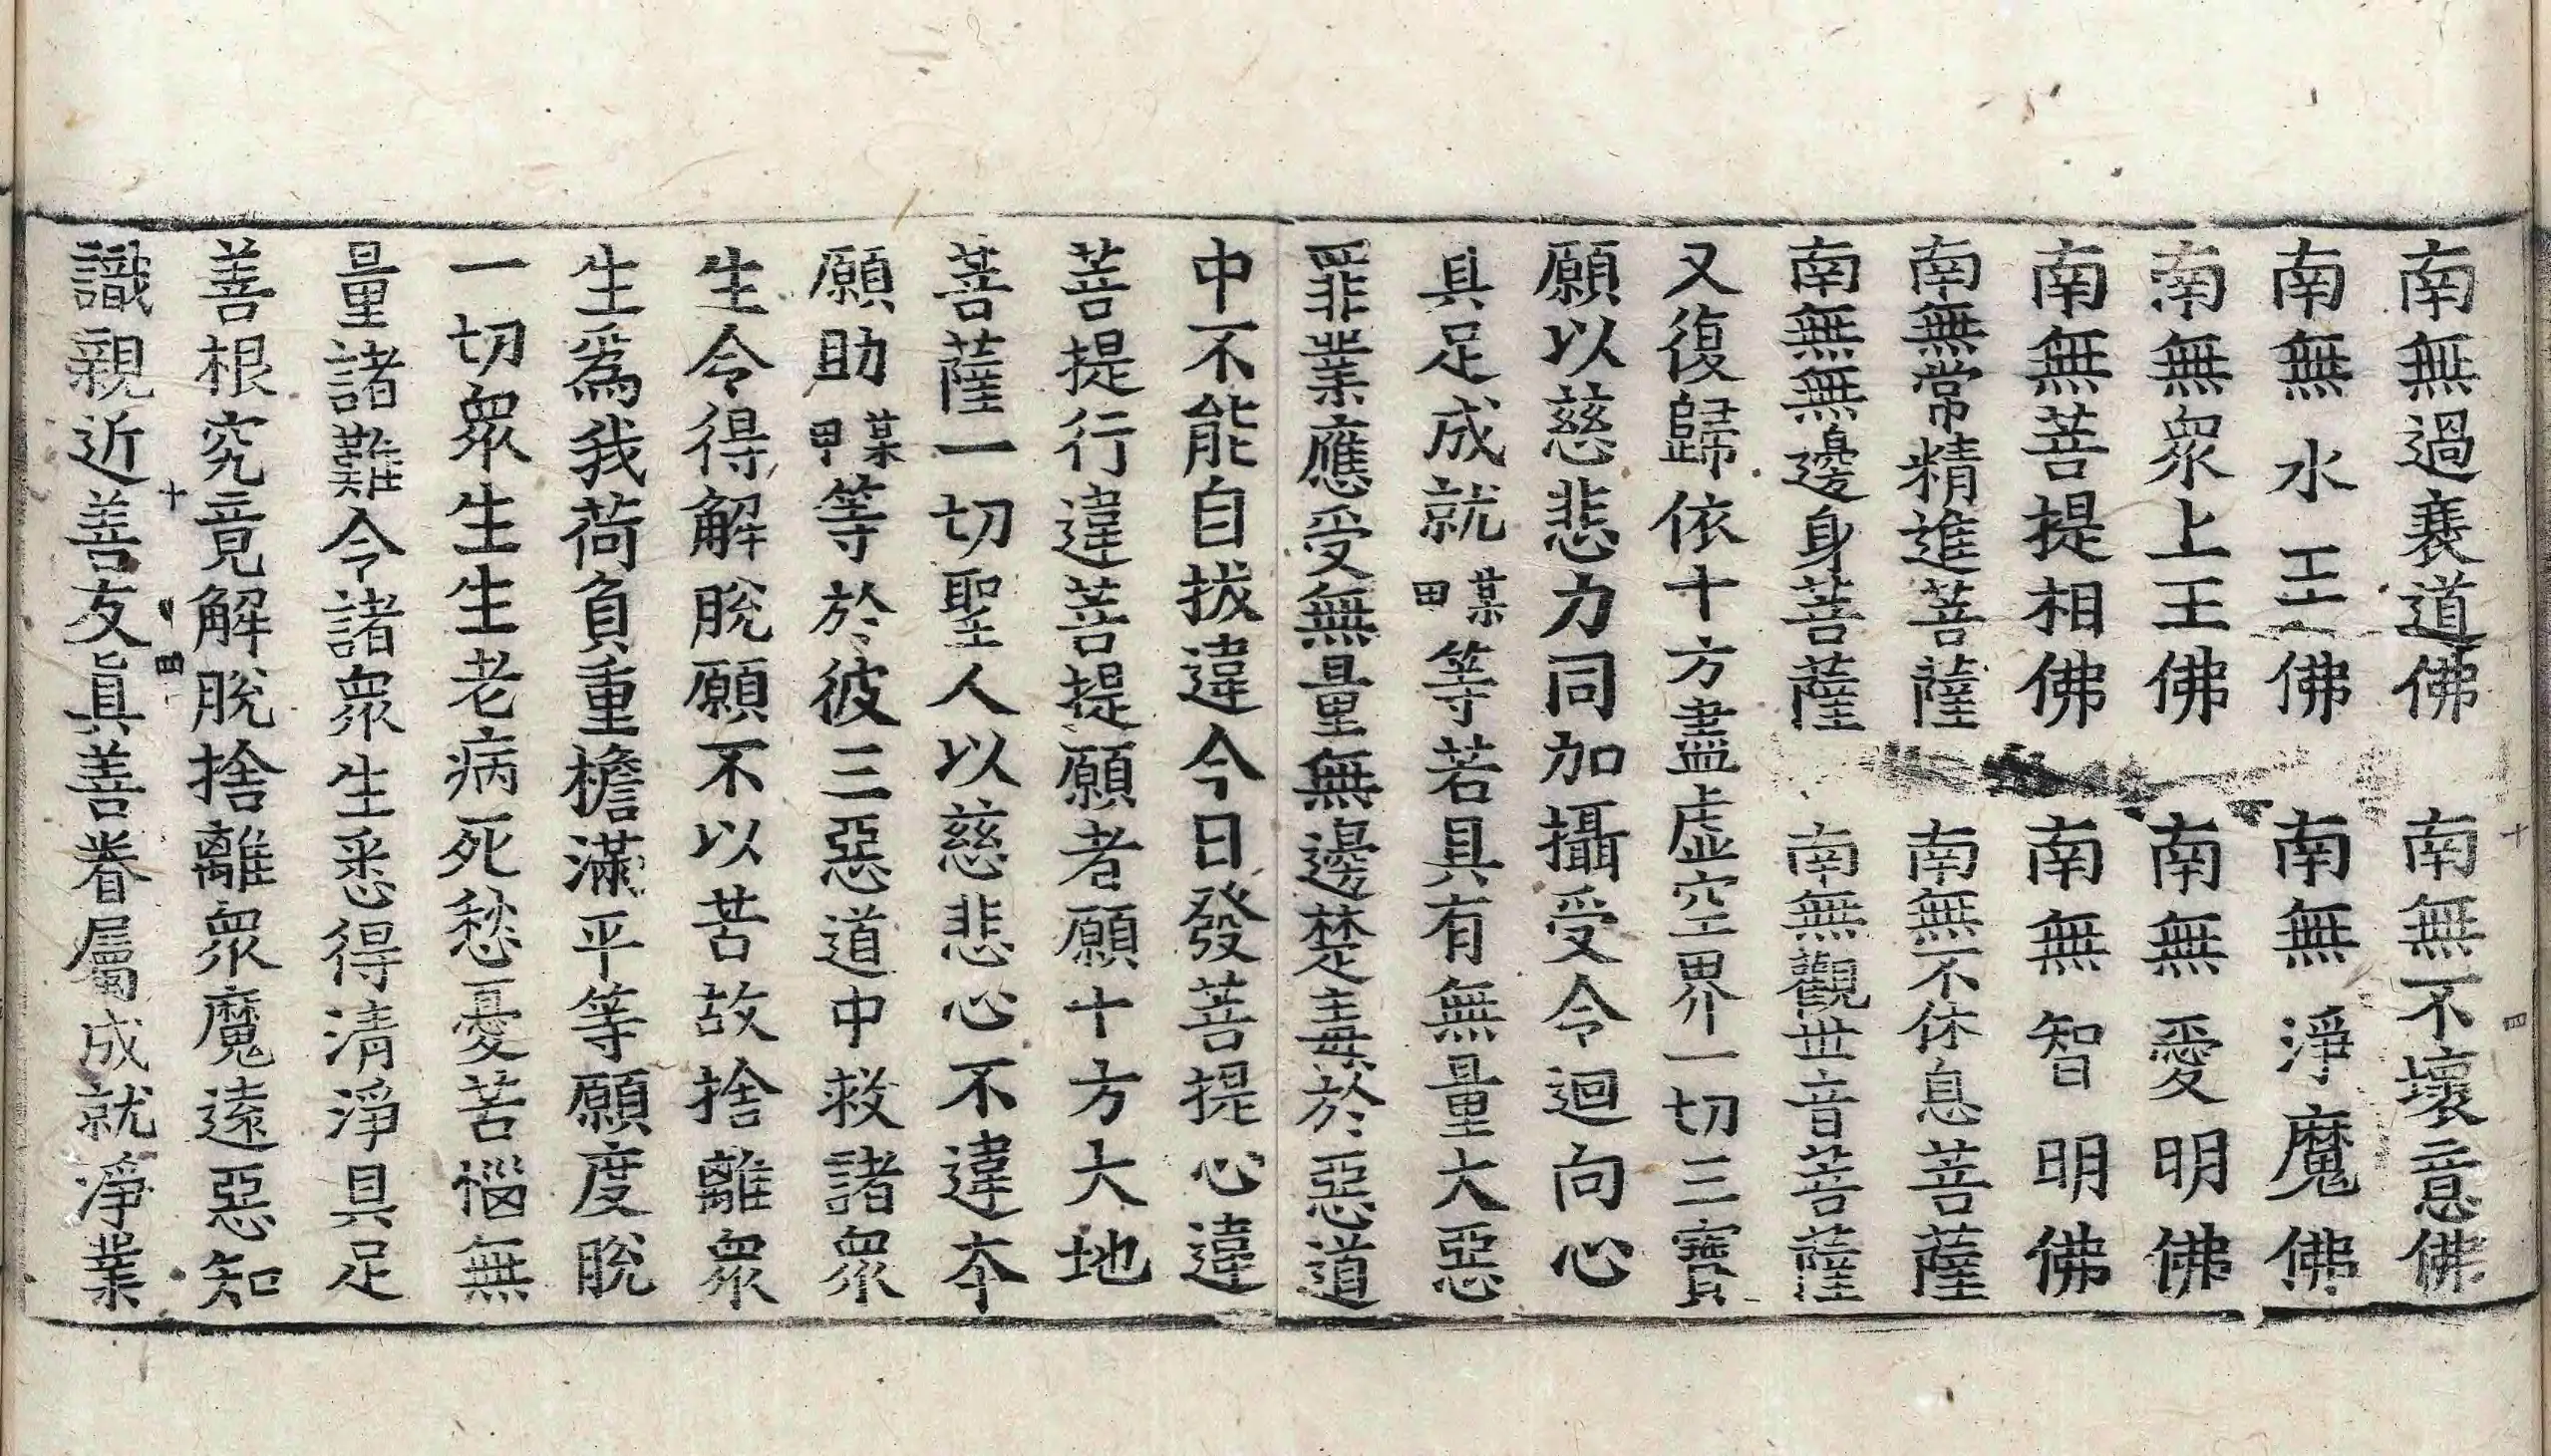 南無過衰道佛 南無不壞意佛
南無水王佛 南無淨魔佛
南無衆上王佛 南無愛明佛
南無菩提相佛 南無智明佛
南無常精進菩薩 南無不休息菩薩
南無無邊身菩薩 南無觀世音菩薩
又復歸依十方盡虛空界一切三寶
願以慈悲力同加攝受令迴向心
具足成就某甲等若具有無量大惡
罪業應受無量無邊楚毒於惡道
中不能自拔違今日發菩提心違
菩提行違菩提願者願十方大地
菩薩一切聖人以慈悲心不違夲
願助某甲等於彼三惡道中救諸衆
生令得解脫願不以苦故捨離衆
生爲我荷負重檐滿平等願度脫
一切衆生生老病死愁憂苦惱無
量諸難令諸衆生悉得清淨具足
善根究竟解脫捨離衆魔遠惡知
十 四
識親近善友眞善眷屬成就淨業